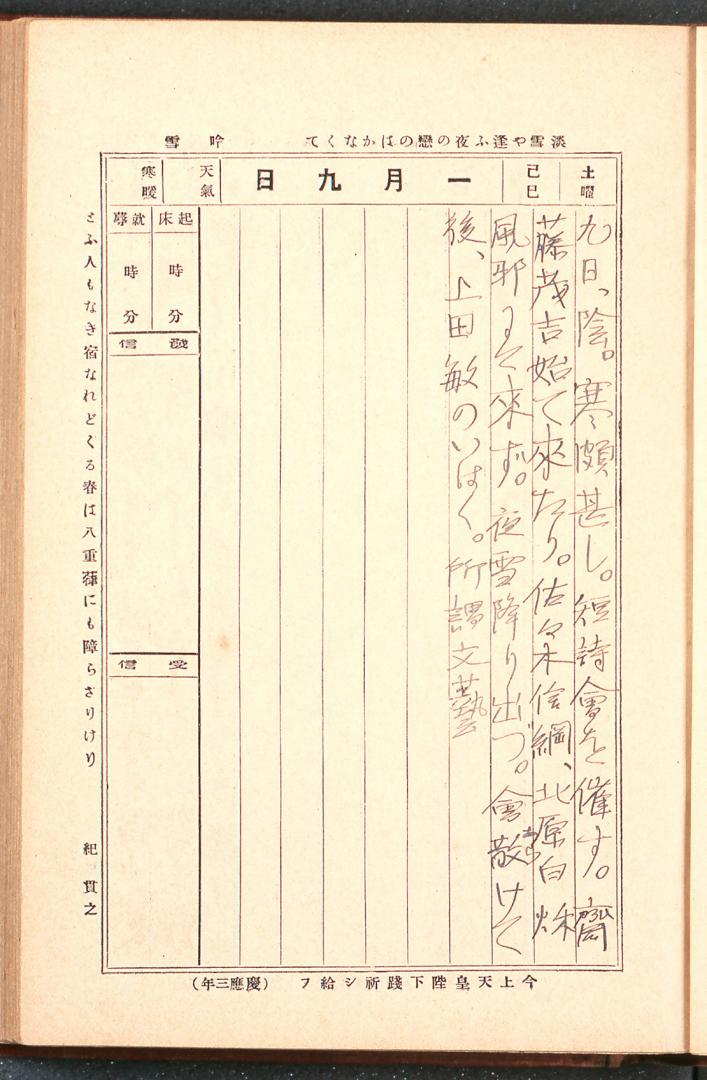 淡雪や逢ふ夜の戀のはかなくて 吟雪
土曜
己巳
一月九日
天氣
寒暖
九日、陰。寒頗甚し。短詩會を催す。齋
藤茂吉始て來たり。佐々木信綱、北原白秋
風邪にて來ず。夜雪降り出づ。會散けて
あら
後、上田敏のいはく。所謂文藝
起床 時 分
就蓐 時 分
發信
受信
とふ人もなき宿なれどくる春は八重葎にも障らざりけり 紀貫之
今上天皇陛下踐祚シ給フ (慶應三年)